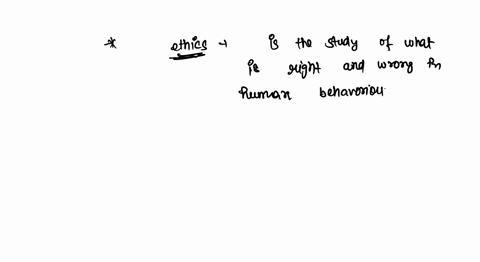 * ethics → is the study of what
is right and wrong in
human behavoriou